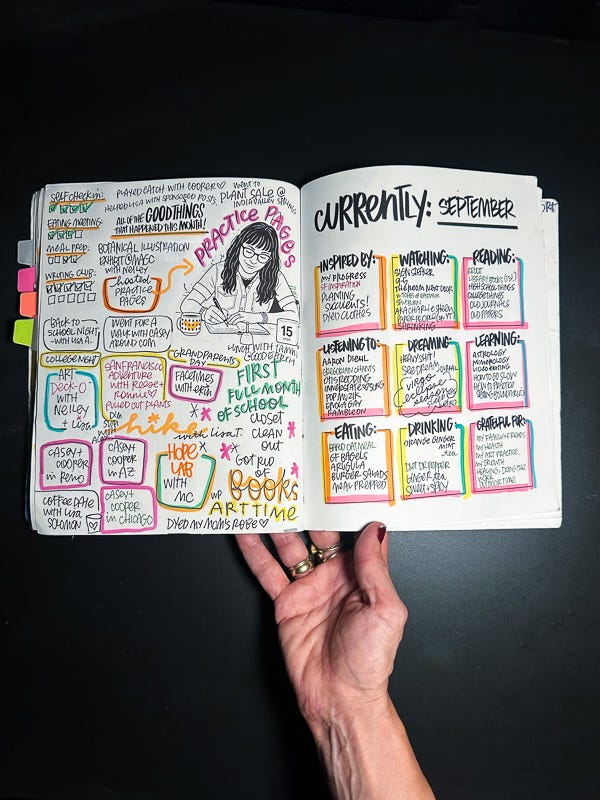 SELF CHECK IN:
PLAYED CATCH WITH COOPER
HELPED LISA WITH SPONSORED POSTS
WENT TO
PLANT SALE @
INDIA VALLEY SPRINGS
EATING MEETING:
MEAL PREP:
WRITING CLUB:
ALL OF THE GOOD THINGS
THAT HAPPENED THIS MONTH!
PRACTICE PAGES
BOTANICAL ILLUSTRATION
EXHIBIT@MASC
WITH NELLEY
hosted
PRACTICE
PAGES
15
BACK TO
SCHOOL NIGHT
-WITH LISA A.
WENT FOR A
WALK WITH CASEY
AROUND COM
COLLEGE NIGHT
ART
Deck-O
WITH
NELLEY
+ LISA
SAN FRANCISCO
ADVENTURE
WITH REESE+
RONNIE
PULLED OUT PLANTS
GRANDPARENTS
DAY
FACETIMES
WITH ERIN
FIRST
FULL MONTH
OF SCHOOL
hike
with LISA T.
CLOSET
CLEAN
OUT
CASEY+
COOPER
IN RENO
CASEY+
COOPER
IN AZ
HOPE
LAB
WITH
MC
GOT RID
OF
BOOKS
COFFEE DATE
WITH LISA
SOLOMON
CASEY+
COOPER
IN CHICAGO
ART TIME
DYED MY MOM'S ROBE
CURRENTLY: SEPTEMBER
INSPIRED BY:
MY PROGRESS
SF INSPIRATION
PLANTING
SUCCULENTS!
DYED CLOTHES
WATCHING:
THE ROOM NEXT DOOR
SHRINKING
READING:
ADULT
LIBRARY BOOKS
HIGH SCHOOL THINGS
COLLEGE THINGS
OLD JOURNALS
OLD PAPERS
LISTENING TO:
AARON DIEHL
GREGORIAN CHANTS
OTIS REDDING
POP MUZIK
ENOLA GAY
DREAMING:
VIRGO
ECLIPSE
LEARNING:
ASTROLOGY
NUMEROLOGY
VIDEO EDITING
HOW TO GO SLOW
HOW TO PRACTICE
SETTING BOUNDARIES
EATING:
BAKED OATMEAL
GF BAGELS
ARUGULA
BURGER SALADS
MEAL PREPPED
DRINKING
ORANGE GINGER
MINT
TEA
DIET DR PEPPER
GINGER TEA
SWEET + SPICY
GRATEFUL FOR:
MY FAMILY + FRIENDS
MY HEALTH
MY PAST PRACTICE
MY GROWTH
HEALING/DOING THE
WORK
OUTDOOR TIME